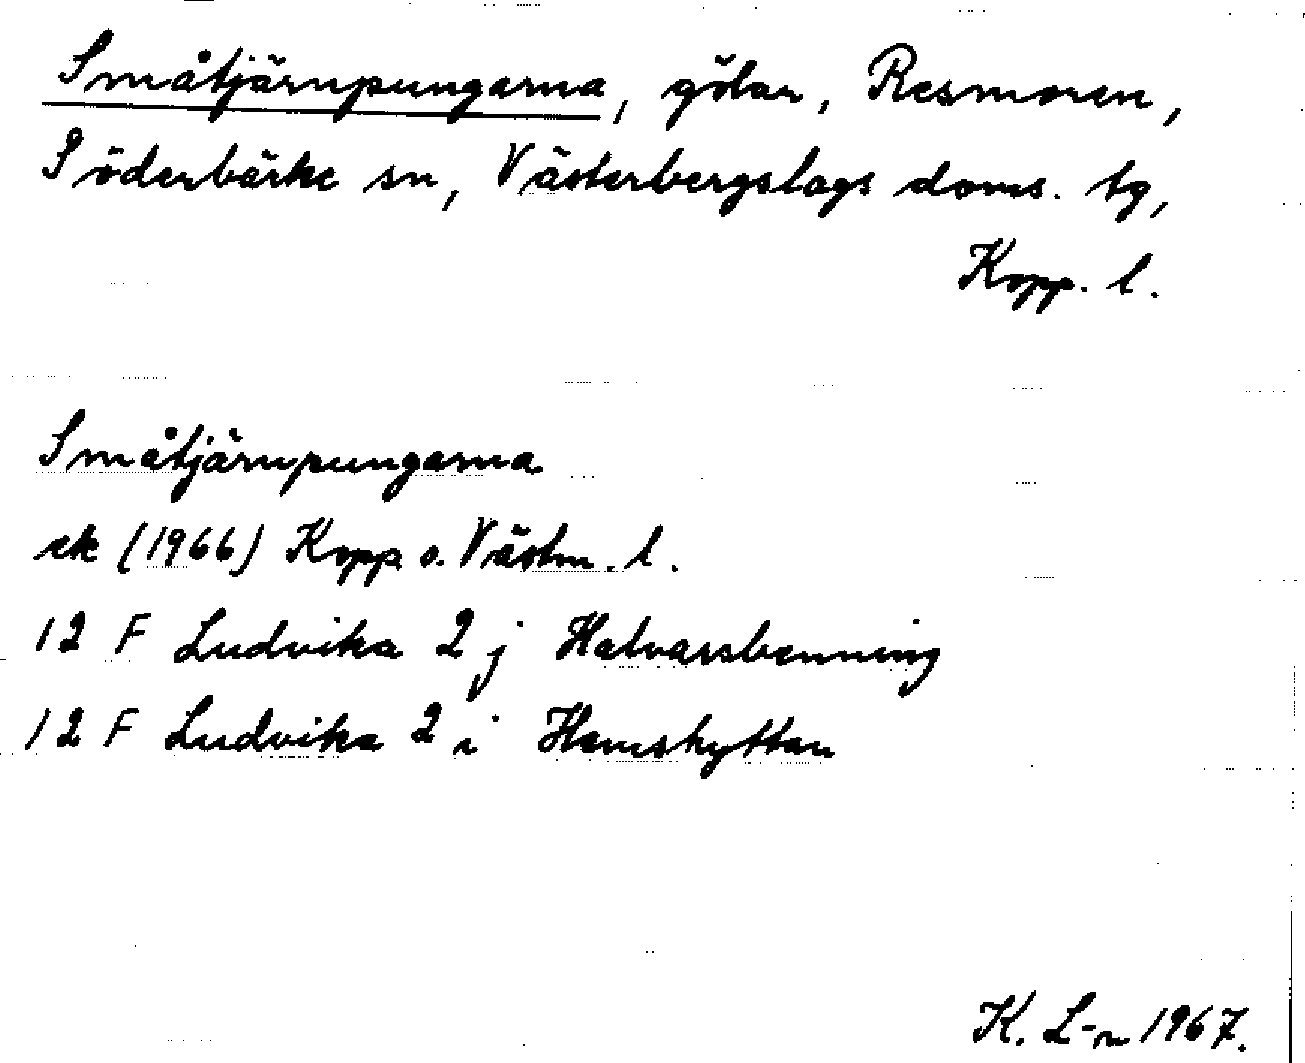 Småtjärnpungarna, gölar, Resmoren,
Söderbärke sn, Västerbergslags doms. tg,
Kopp. l.
Småtjärnpungarna
ek (1966) Kopp. o. Västm. l.
12 F Ludvika 2 j Halvarsbenning
12 F Ludvika 2 i Hemshyttan
K. L-n 1967.